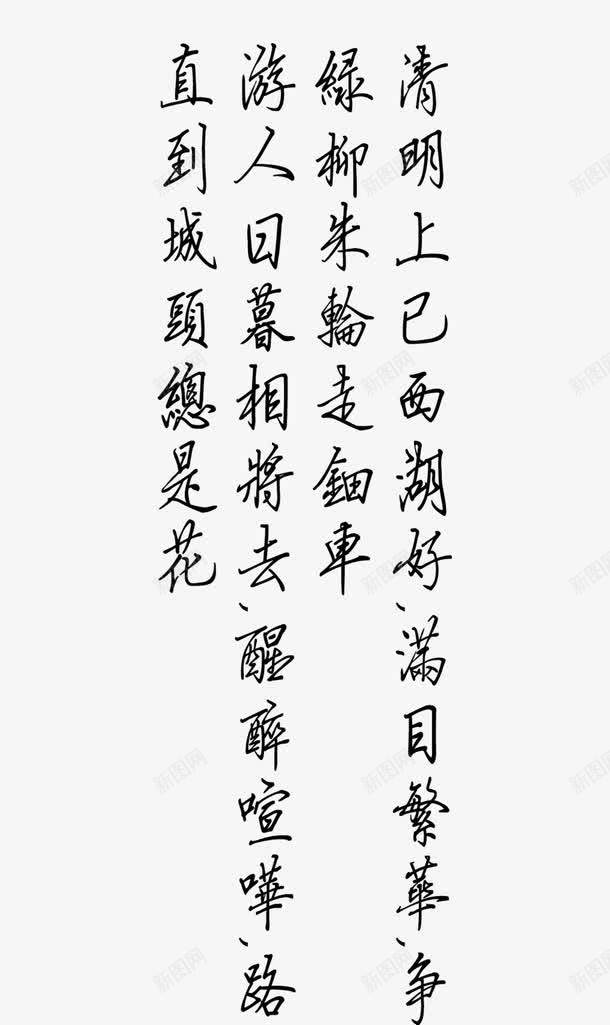 清明上已西湖好、滿目繁華、争
綠柳朱輪走鈿車
游人日暮相將去、醒醉喧嘩、路
直到城頭總是花